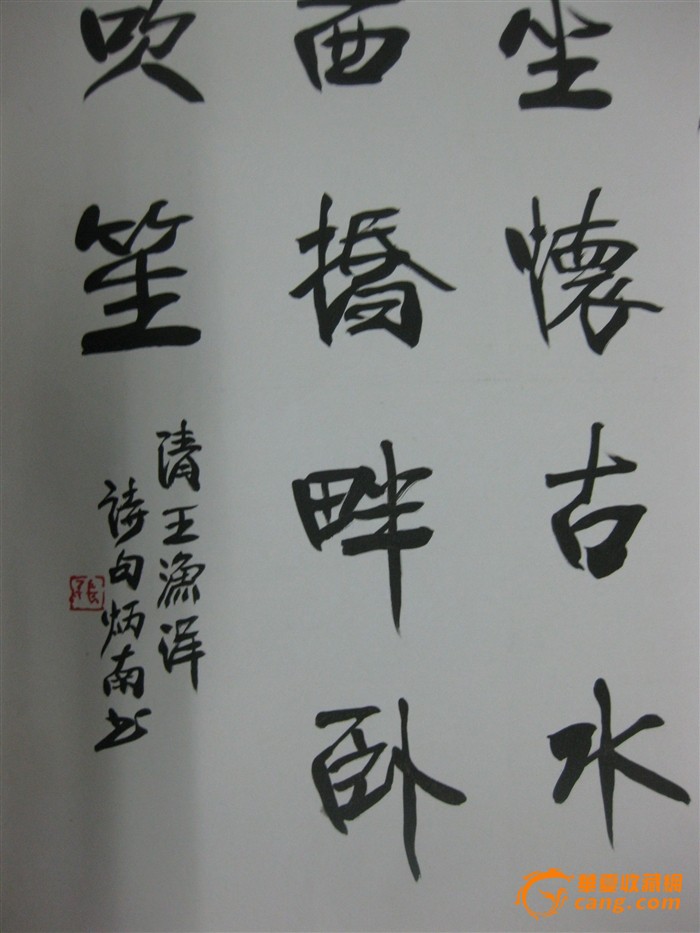 坐懷古水
西橋畔卧
吹笙
清王漁洋
詩句炳南书
張
華夏收藏網
cang.com